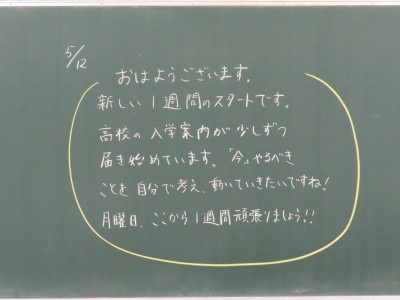 5/12
おはようございます。
新しい1週間のスタートです。
高校の入学案内が少しずつ
届き始めています。「今」やるべき
ことを自分で考え、動いていきたいですね!
月曜日、ここから1週間頑張りましょう!!